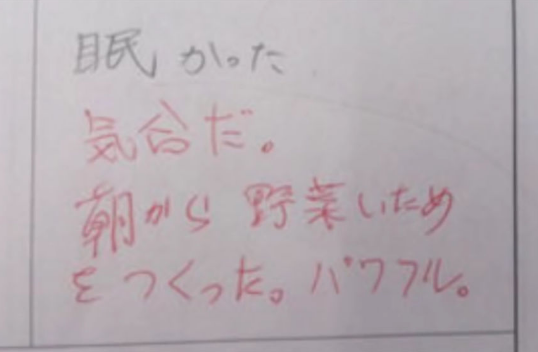 眠かった
気合だ。
朝から野菜いため
をつくった。パワフル。